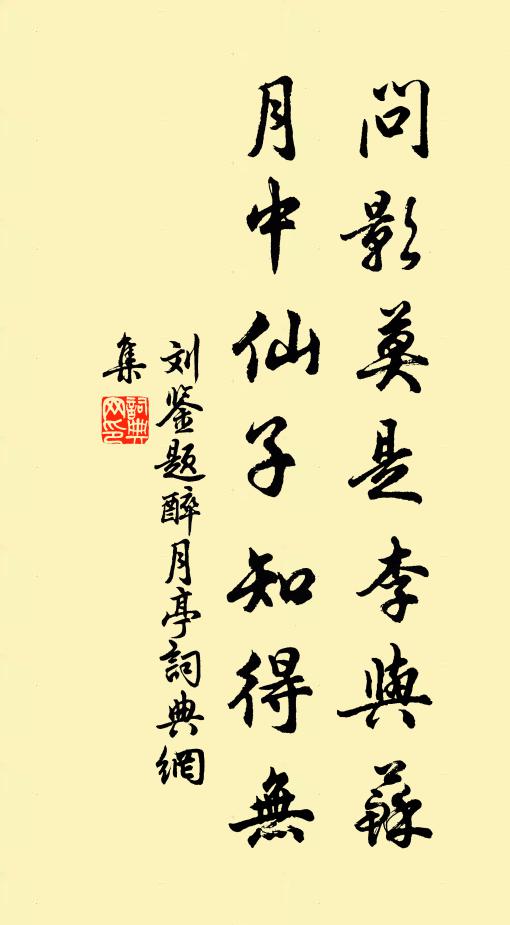 問影莫是李與蘇
月中仙子知得無
刘鉴题醉月亭詞典網
集
詞典
网印